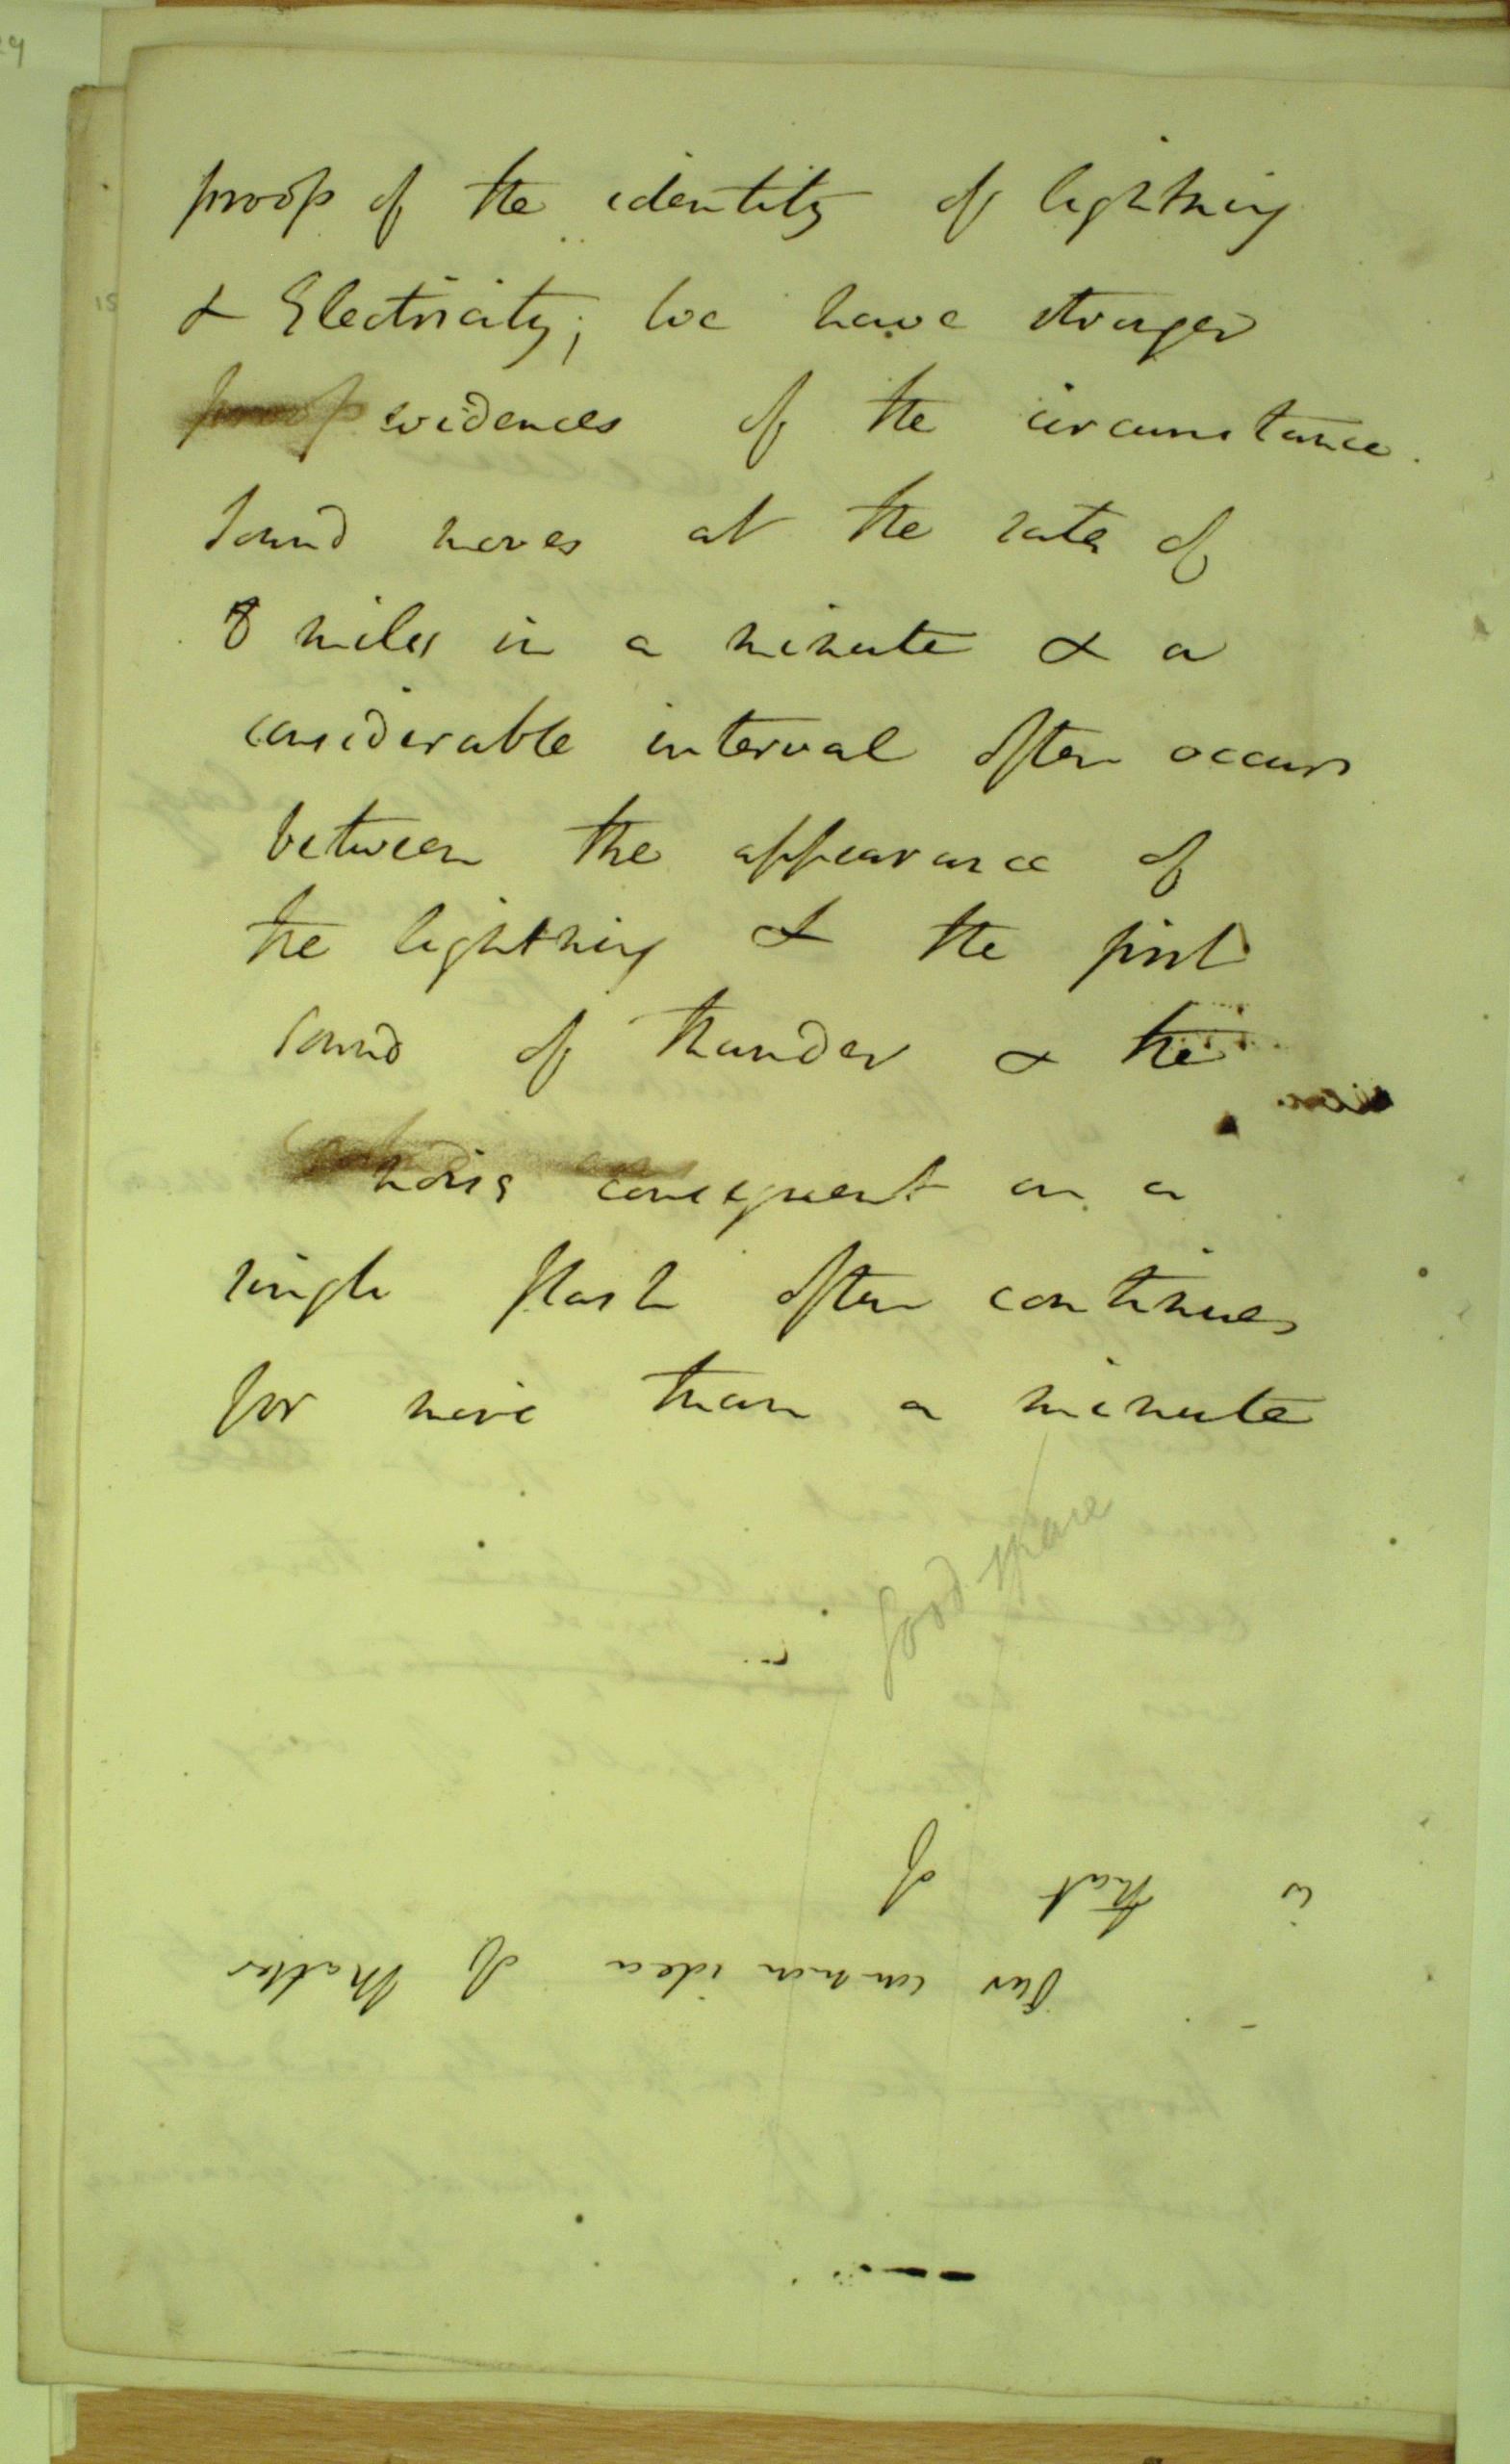 proofs of the identity of lightning
& Electricity; we have stronger
proofs evidences of the circumstance.
Sound moves at the rate of
8 miles in a minute & a
considerable interval often occurs
between the appearance of
the lightning & the first
sound of thunder & the
noise consequent on a
single flash often continues
for more than a minute
good spare
Our common idea of Matter
is that of